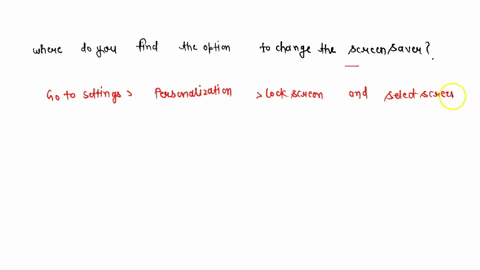 where do you find the option to change the screensaver?.
Go to settings > Personalization > Lock screen and select screen